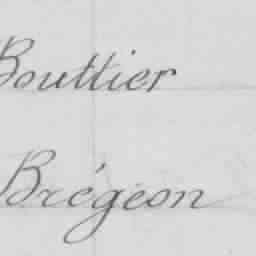 Bouttier
Brégeon